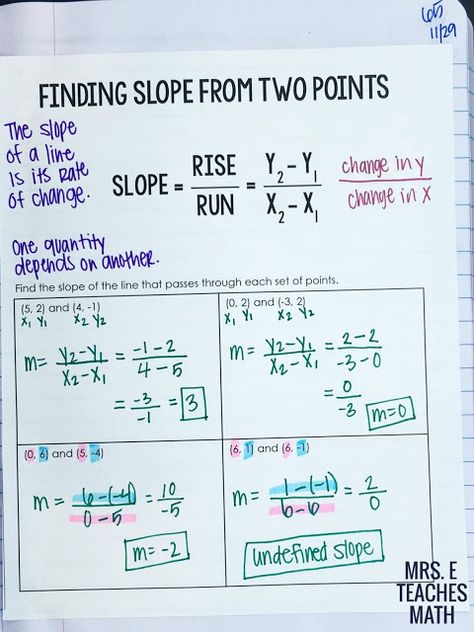 65
11/29
FINDING SLOPE FROM TWO POINTS
The slope
of a line
is its rate
of change.
SLOPE = RISE / RUN = Y₂ - Y₁ / X₂ - X₁
change in y / change in x
One quantity
depends on another.
Find the slope of the line that passes through each set of points.
(5, 2) and (4, -1)
X₁ Y₁ X₂ Y₂
m = Y₂-Y₁ / X₂-X₁ = -1-2 / 4-5
= -3 / -1 = 3
(0, 2) and (-3, 2)
X₁ Y₁ X₂ Y₂
m = Y₂-Y₁ / X₂-X₁ = 2-2 / -3-0
= 0 / -3 m=0
(0, 6) and (5, -4)
m = 6-(-4) / 0-5 = 10 / -5
m= -2
(6, 1) and (6, -1)
m = 1-(-1) / 6-6 = 2 / 0
undefined slope
MRS. E
TEACHES
MATH